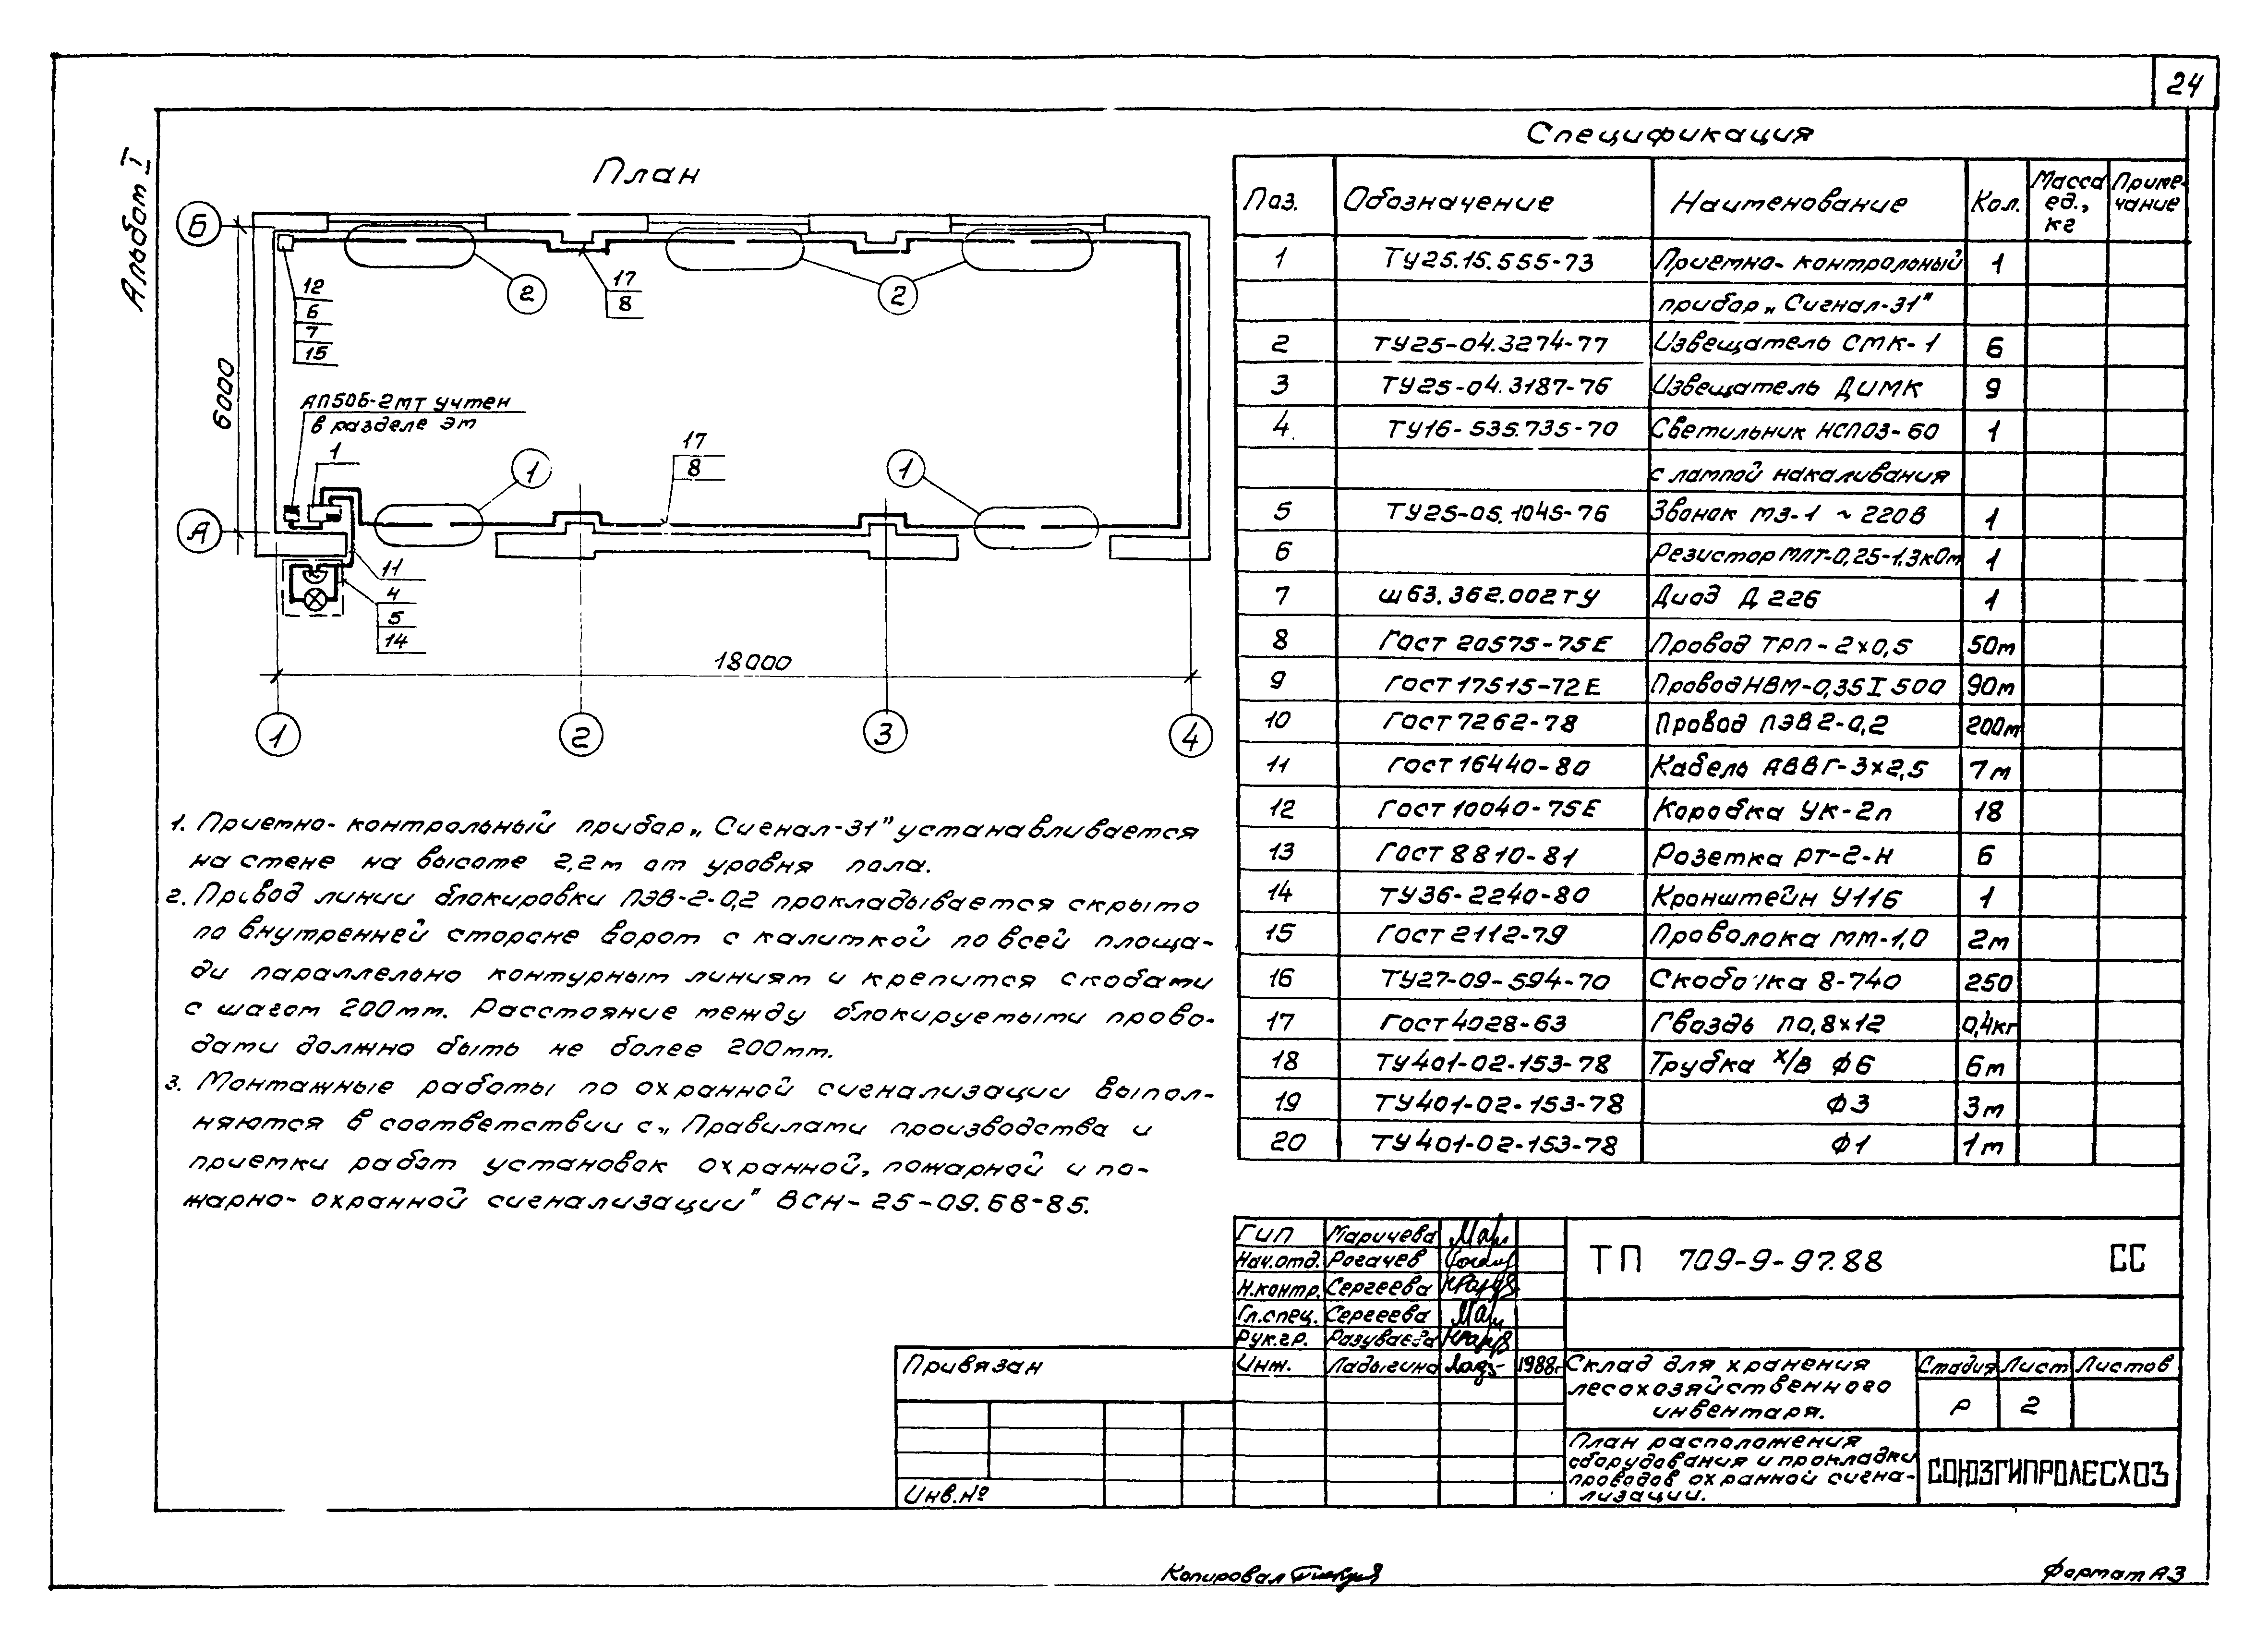 24
Альбом I
План
Б
12
6
7
15
2
17
8
2
6000
АП50Б-2МТ учтен
в разделе ЭМ
1
1
17
8
1
А
11
4
5
14
18000
1
2
3
4
1. Приемно-контрольный прибор „Сигнал-31" устанавливается
на стене на высоте 2,2м от уровня пола.
2. Провод линии блокировки ПЭВ-2-0,2 прокладывается скрыто
по внутренней стороне ворот с калиткой по всей площа-
ди параллельно контурным линиям и крепится скобами
с шагом 200мм. Расстояние между блокируемыми прово-
дами должно быть не более 200мм.
3. Монтажные работы по охранной сигнализации выпол-
няются в соответствии с „Правилами производства и
приемки работ установок охранной, пожарной и по-
жарно-охранной сигнализации" ВСН-25-09.68-85.
Спецификация
Поз. Обозначение Наименование Кол. Масса ед., кг Примечание
1 ТУ25.15.555-73 Приемно-контрольный 1
прибор „Сигнал-31"
2 ТУ25-04.3274-77 Извещатель СМК-1 6
3 ТУ25-04.3187-76 Извещатель ДИМК 9
4 ТУ16-535.735-70 Светильник НСП03-60 1
с лампой накаливания
5 ТУ25-05.1045-76 Звонок МЗ-1 ~220В 1
6 Резистор МЛТ-0,25-1,3кОм 1
7 Щ63.362.002ТУ Диод Д226 1
8 ГОСТ 20575-75Е Провод ТРП-2х0,5 50м
9 ГОСТ 17515-72Е Провод НВМ-0,35 I 500 90м
10 ГОСТ 7262-78 Провод ПЭВ2-0,2 200м
11 ГОСТ 16440-80 Кабель АВВГ-3х2,5 7м
12 ГОСТ 10040-75Е Коробка УК-2п 18
13 ГОСТ 8810-81 Розетка РТ-2-Н 6
14 ТУ36-2240-80 Кронштейн У116 1
15 ГОСТ 2112-79 Проволока ММ-1,0 2м
16 ТУ27-09-594-70 Скобочка 8-740 250
17 ГОСТ 4028-63 Гвоздь П0,8х12 0,4кг
18 ТУ401-02-153-78 Трубка х/в Ф6 6м
19 ТУ401-02-153-78 Ф3 3м
20 ТУ401-02-153-78 Ф1 1м
ГИП Маричева
Нач.отд. Рогачев
Н.контр. Сергеева
Гл.спец. Сергеева
Рук.гр. Разуваева
Инж. Ладыгина 1988г
ТП 709-9-97.88 СС
Склад для хранения
лесохозяйственного
инвентаря.
Стадия Лист Листов
Р 2
План расположения
оборудования и прокладки
проводов охранной сигна-
лизации.
СОЮЗГИПРОЛЕСХОЗ
Привязан
Инв.№
Копировал
Формат А3